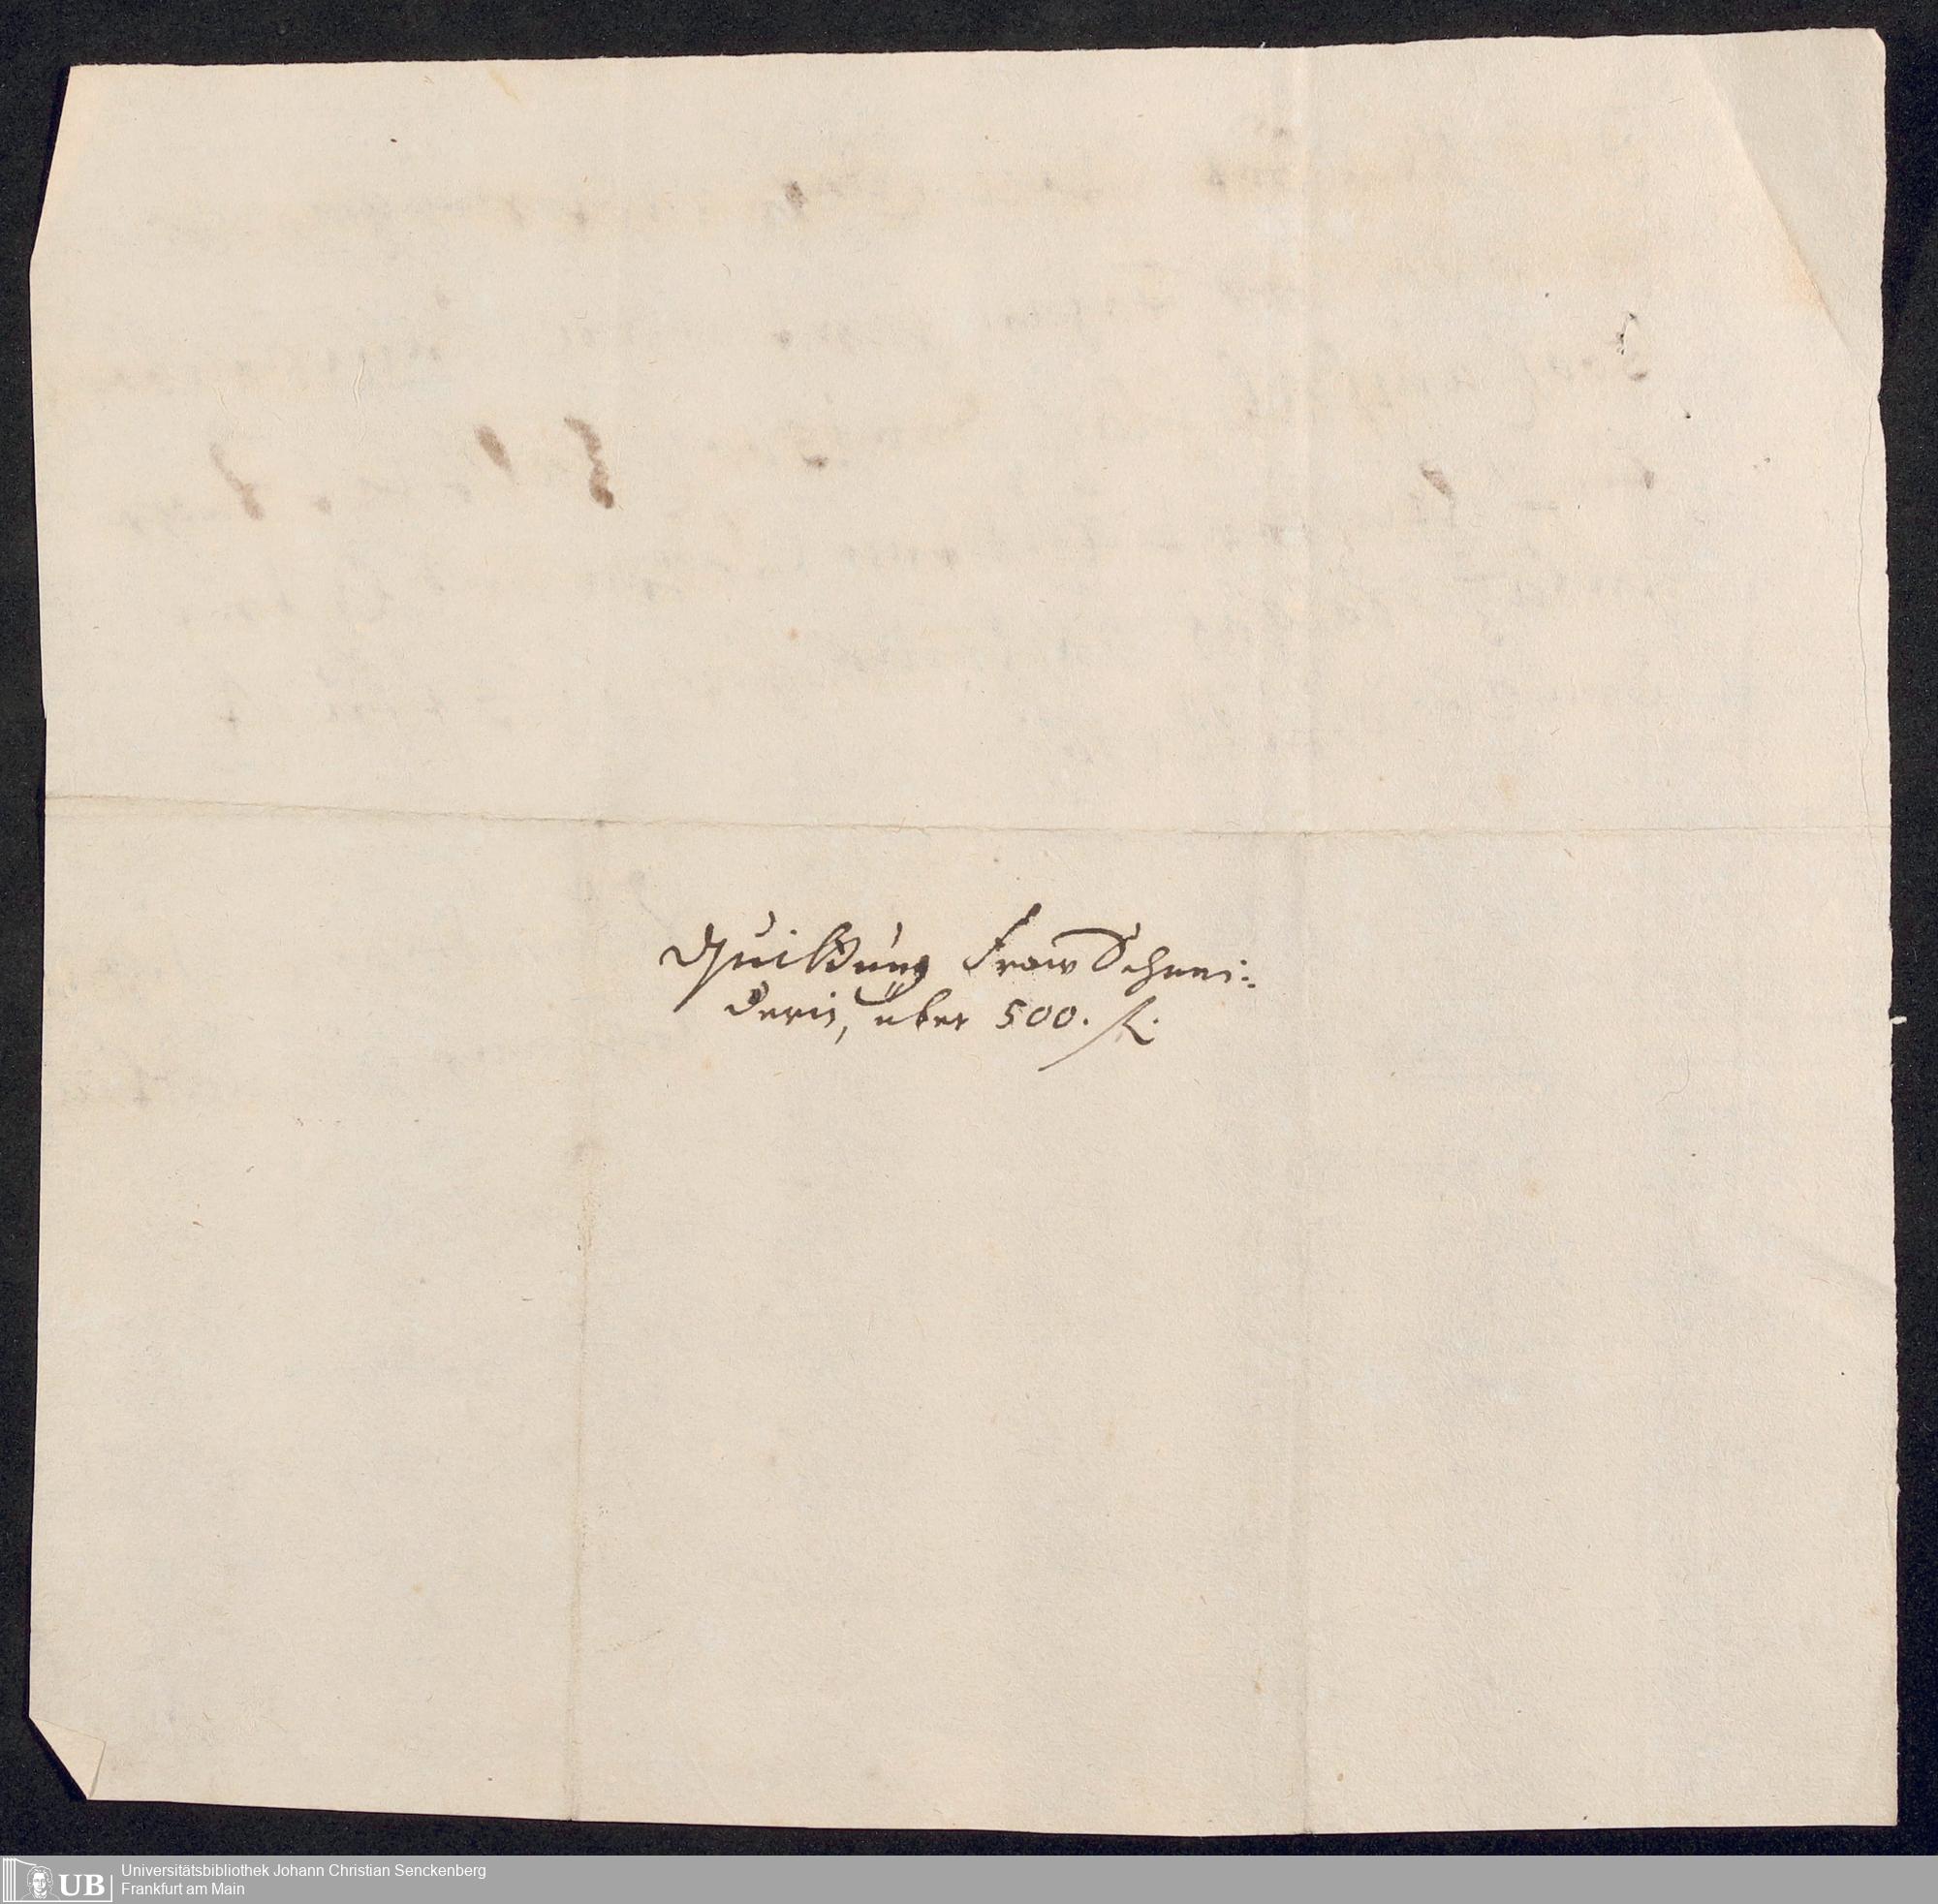 Quittung Fraw Schnei:
derin, über 500. fl.
UB
Universitätsbibliothek Johann Christian Senckenberg
Frankfurt am Main